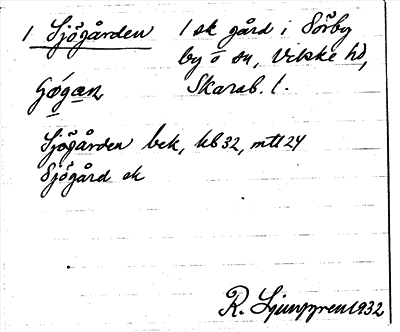 1 Sjögården 1 sk gård i Sörby
by o sn, Vilske hd,
Gógan Skarab. l.
Sjögården bek, hb 32, mtl 24
Sjögård ek
R. Ljunggren 1932